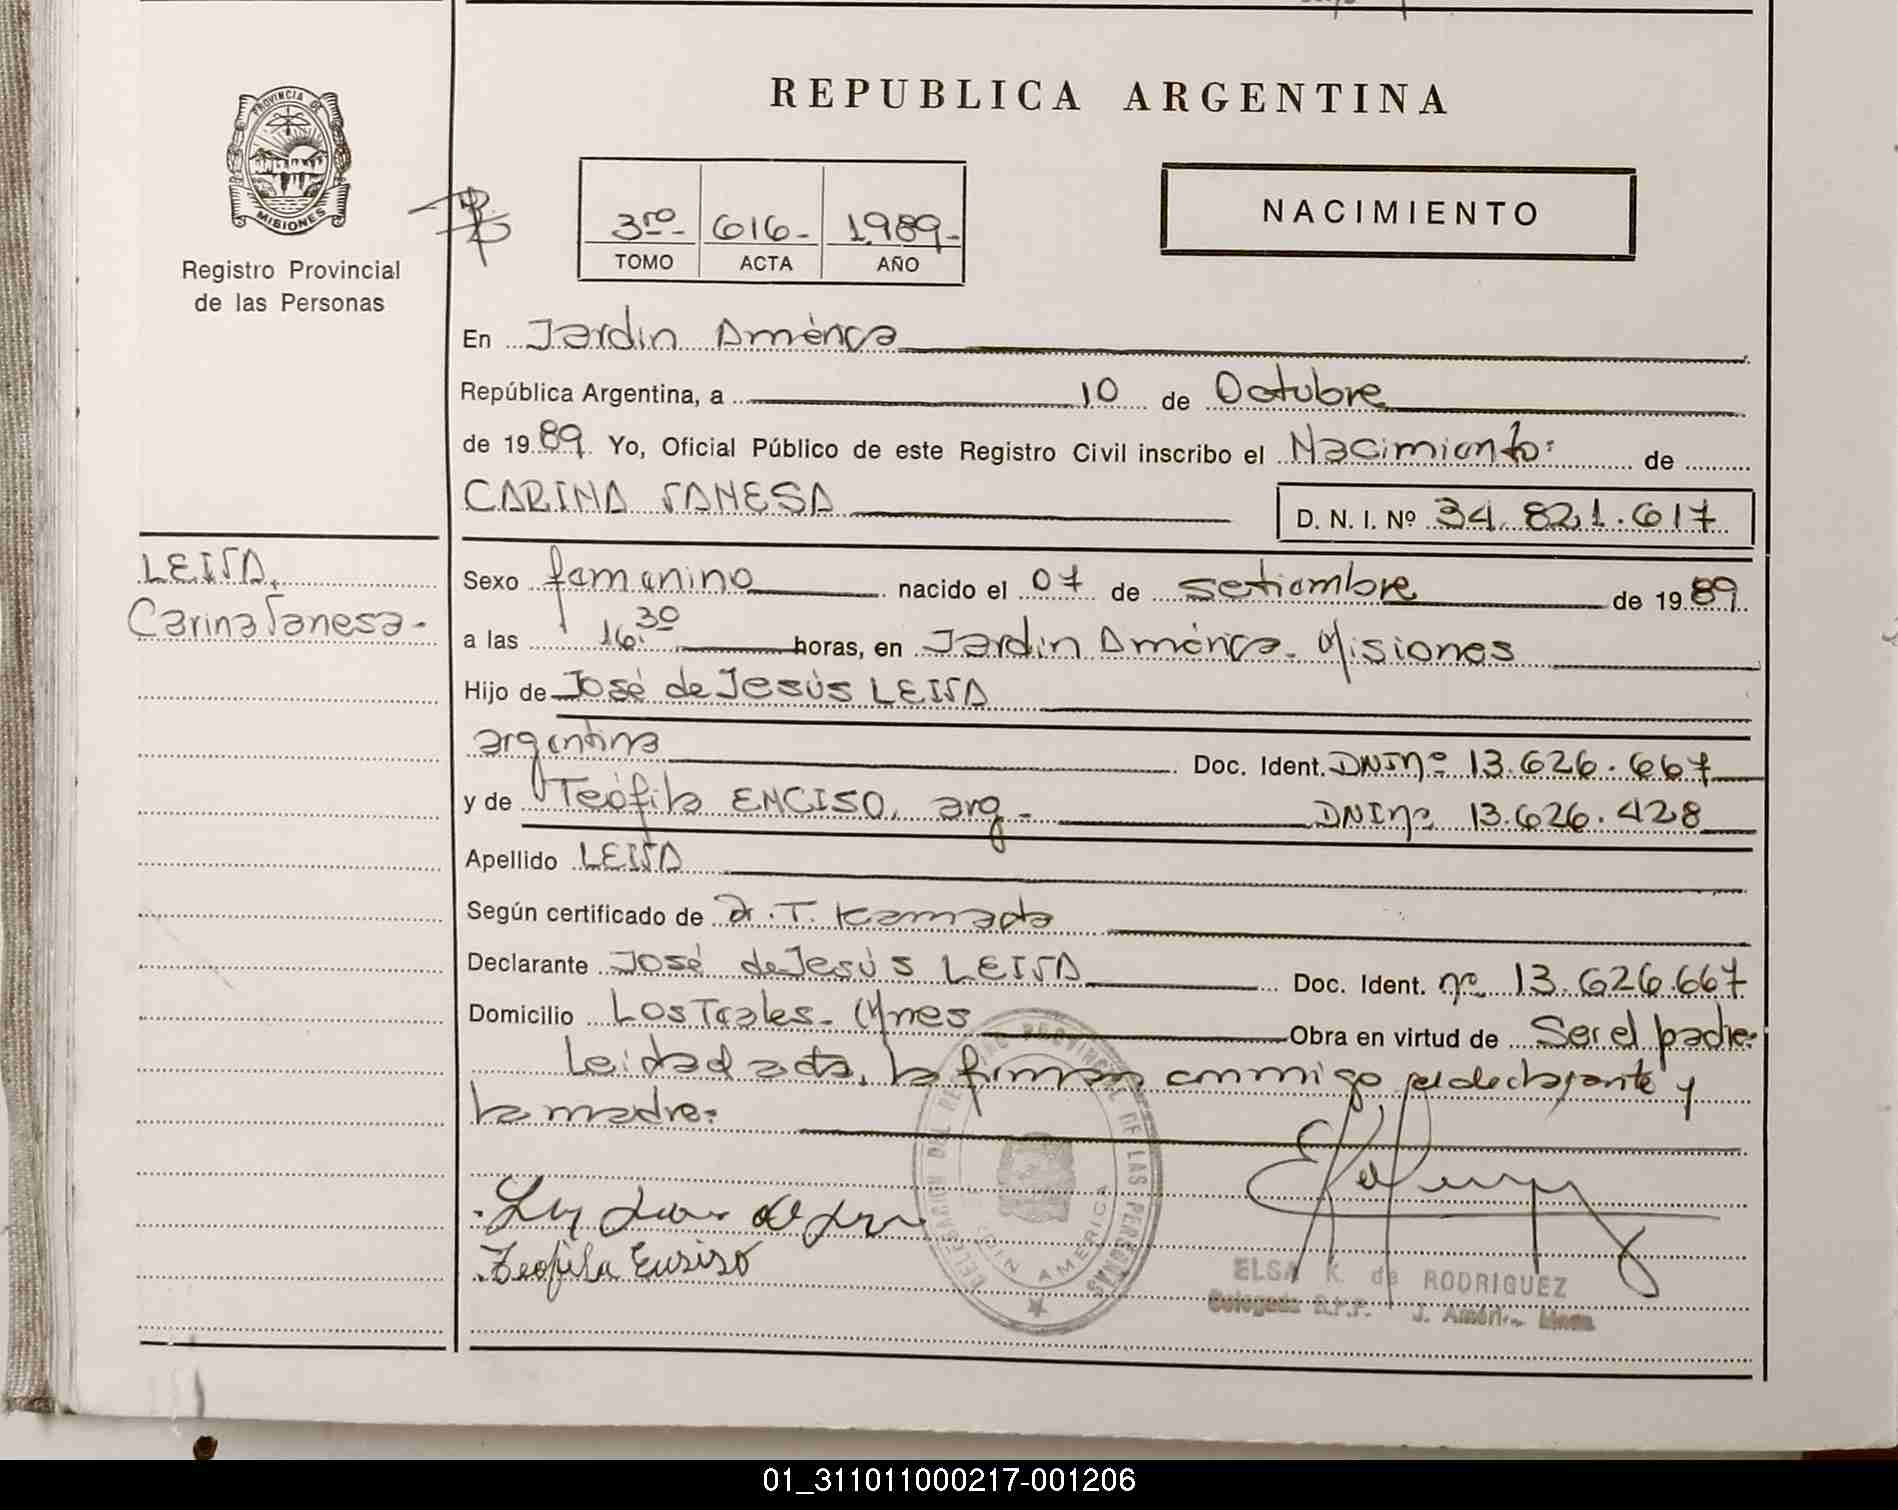 REPUBLICA ARGENTINA
PROVINCIA DE MISIONES
Registro Provincial
de las Personas
3ro- 616- 1989-
TOMO ACTA AÑO
NACIMIENTO
En Jardín América
República Argentina, a 10 de Octubre
de 1989 Yo, Oficial Público de este Registro Civil inscribo el Nacimiento: de
CARINA VANESA
D. N. I. Nº 34.821.617
LEIVA,
Carina Vanesa-
Sexo femenino nacido el 07 de setiembre de 1989
a las 16:30 horas, en Jardín América. Misiones
Hijo de José de Jesús LEIVA
argentina Doc. Ident. DNInº 13.626.667
y de Teófila ENCISO, arg- DNInº 13.626.428
Apellido LEIVA
Según certificado de Dr. T. Kamada
Declarante José de Jesús LEIVA Doc. Ident. nº 13.626.667
Domicilio Los Teales- Mnes Obra en virtud de Ser el padre.
Leida el acta, la firman conmigo el declarante y
la madre:
DELEGACION DEL REGISTRO PROVINCIAL DE LAS PERSONAS
JARDIN AMERICA
Teofila Ensiso
ELSA K. de RODRIGUEZ
Delegada R.P.P. J. América Mnes.
01_311011000217-001206